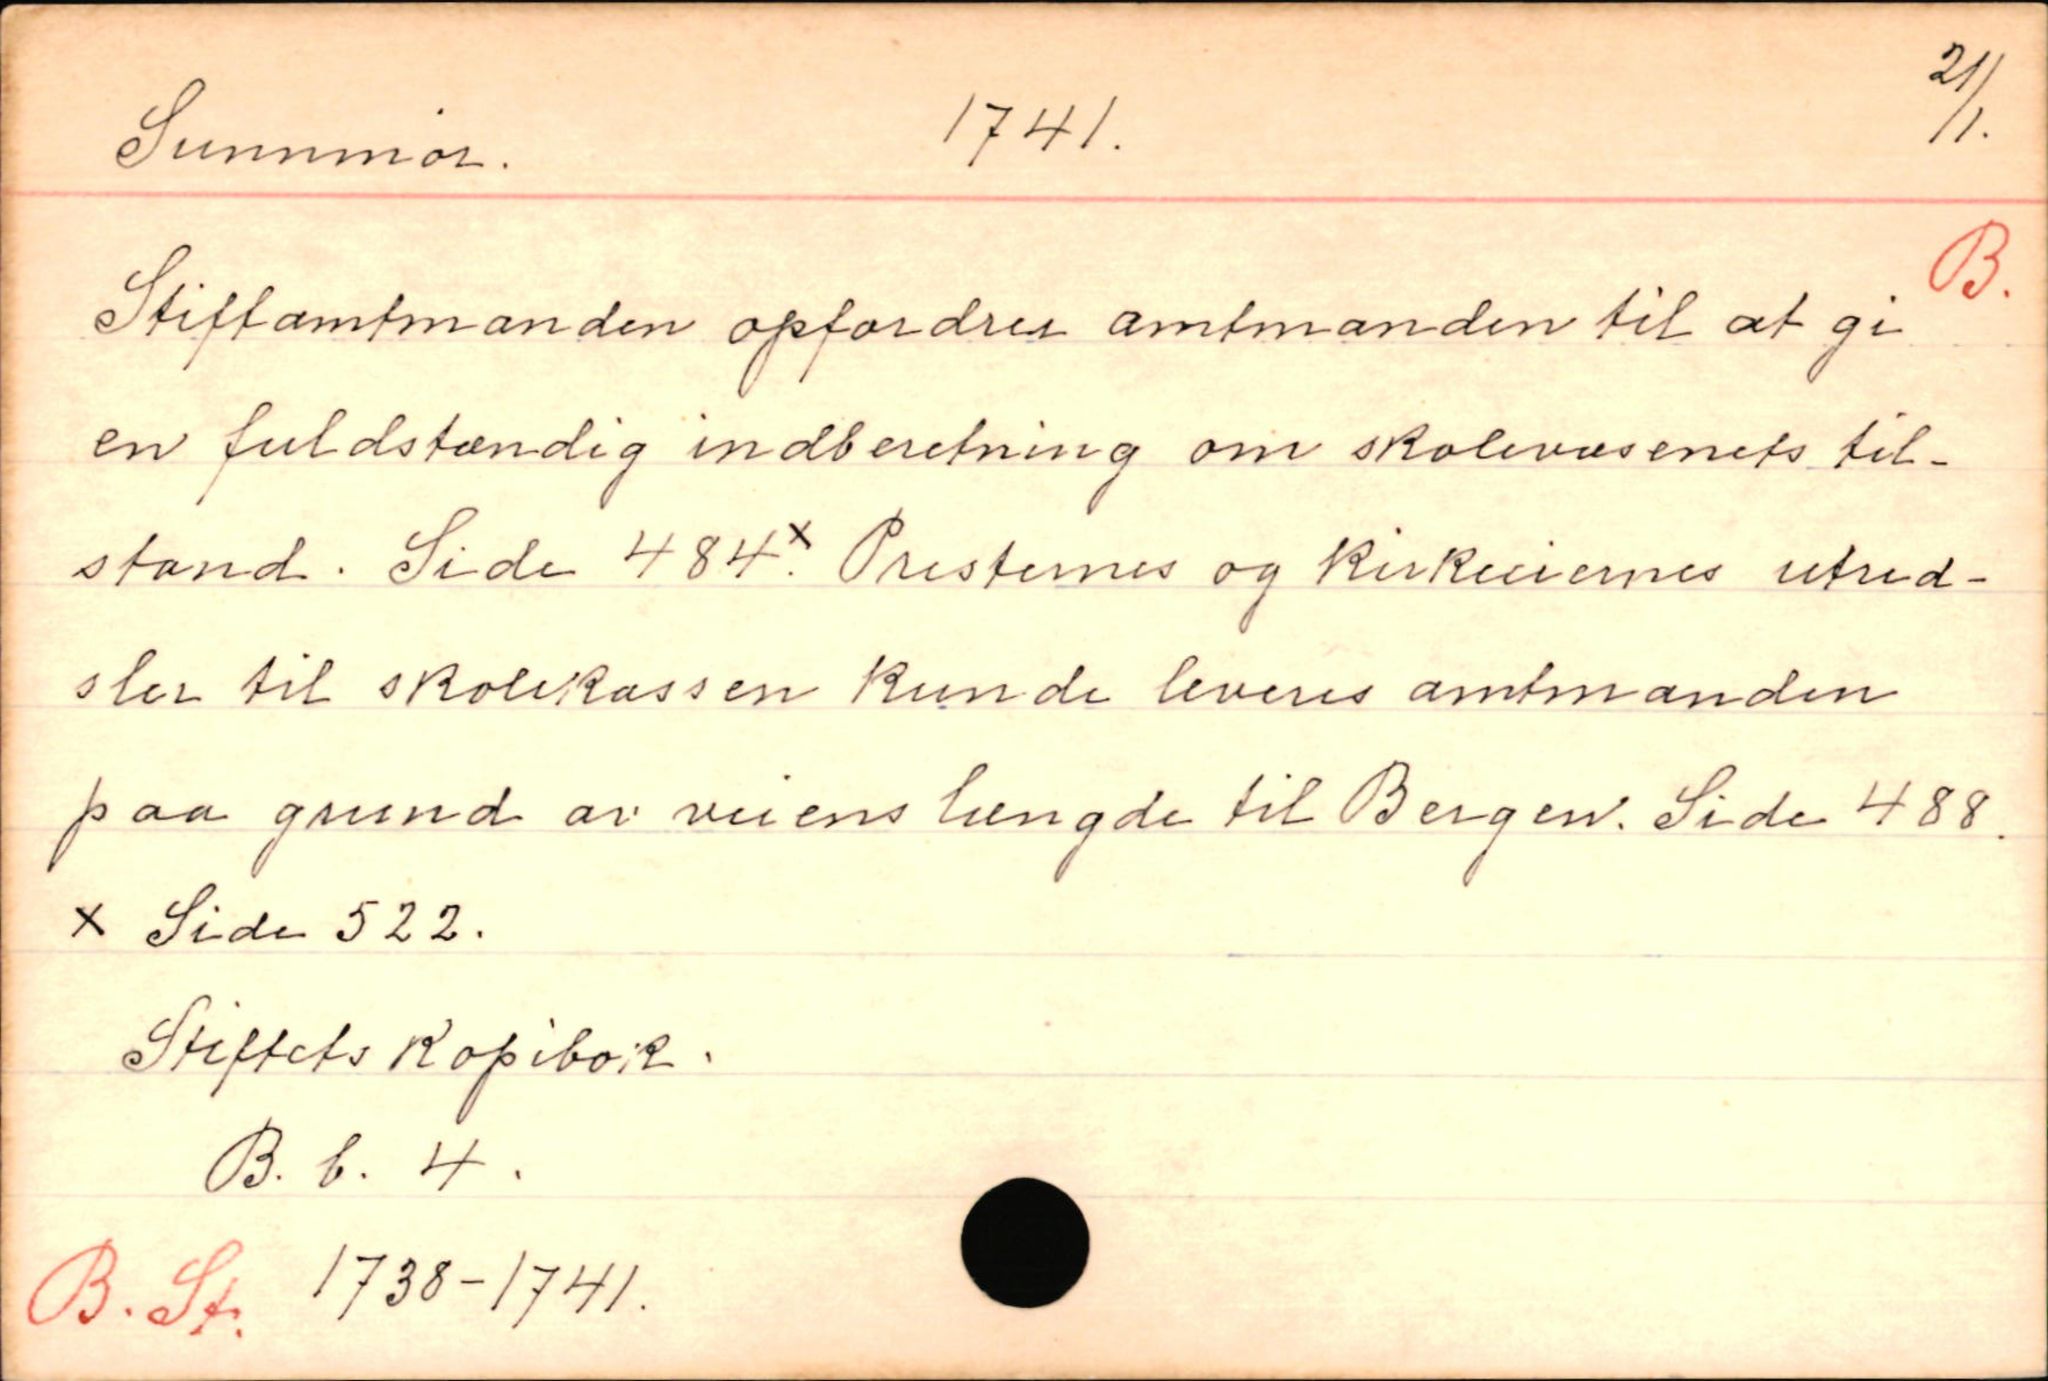 Sunnmør. 1741. 21/1.
B.
Stiftamtmanden opfordrer amtmanden til at gi
en fuldstændig indberetning om skolevæsenets til-
stand. Side 484.x Presternes og kirkeeiernes utred-
sler til skolekassen kunde leveres amtmanden
paa grund av veiens længde til Bergen. Side 488.
x Side 522.
Stiftets kopibok.
B. b. 4.
B. St. 1738-1741.